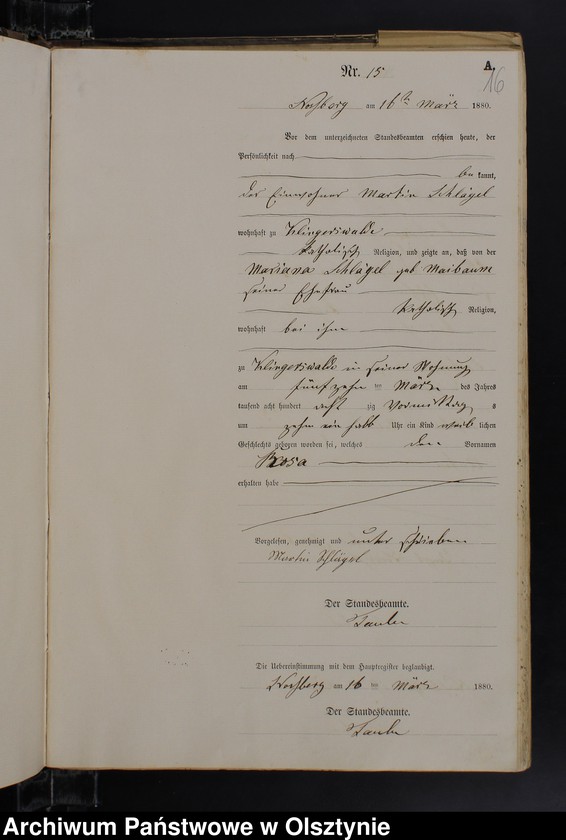 A.
16
Nr. 15
am 16ten März 1880.
Vor dem unterzeichneten Standesbeamten erschien heute, der
Persönlichkeit nach
be kannt,
der Einwohner Martin Schlägel
wohnhaft zu Klingerswalde
katholisch Religion, und zeigte an, daß von der
Mariana Schlägel geb Maibaum
seiner Ehefrau
katholisch Religion,
wohnhaft bei ihm
zu Klingerswalde in seiner Wohnung
am fünfzehn ten März des Jahres
tausend acht hundert acht zig Vormittag s
um zehn ein halb Uhr ein Kind weib lichen
Geschlechts geboren worden sei, welches den Vornamen
Rosa
erhalten habe
Vorgelesen, genehmigt und unterschrieben
Martin Schlägel
Der Standesbeamte.
Die Uebereinstimmung mit dem Hauptregister beglaubigt.
am 16 ten März 1880.
Der Standesbeamte.
Archiwum Państwowe w Olsztynie